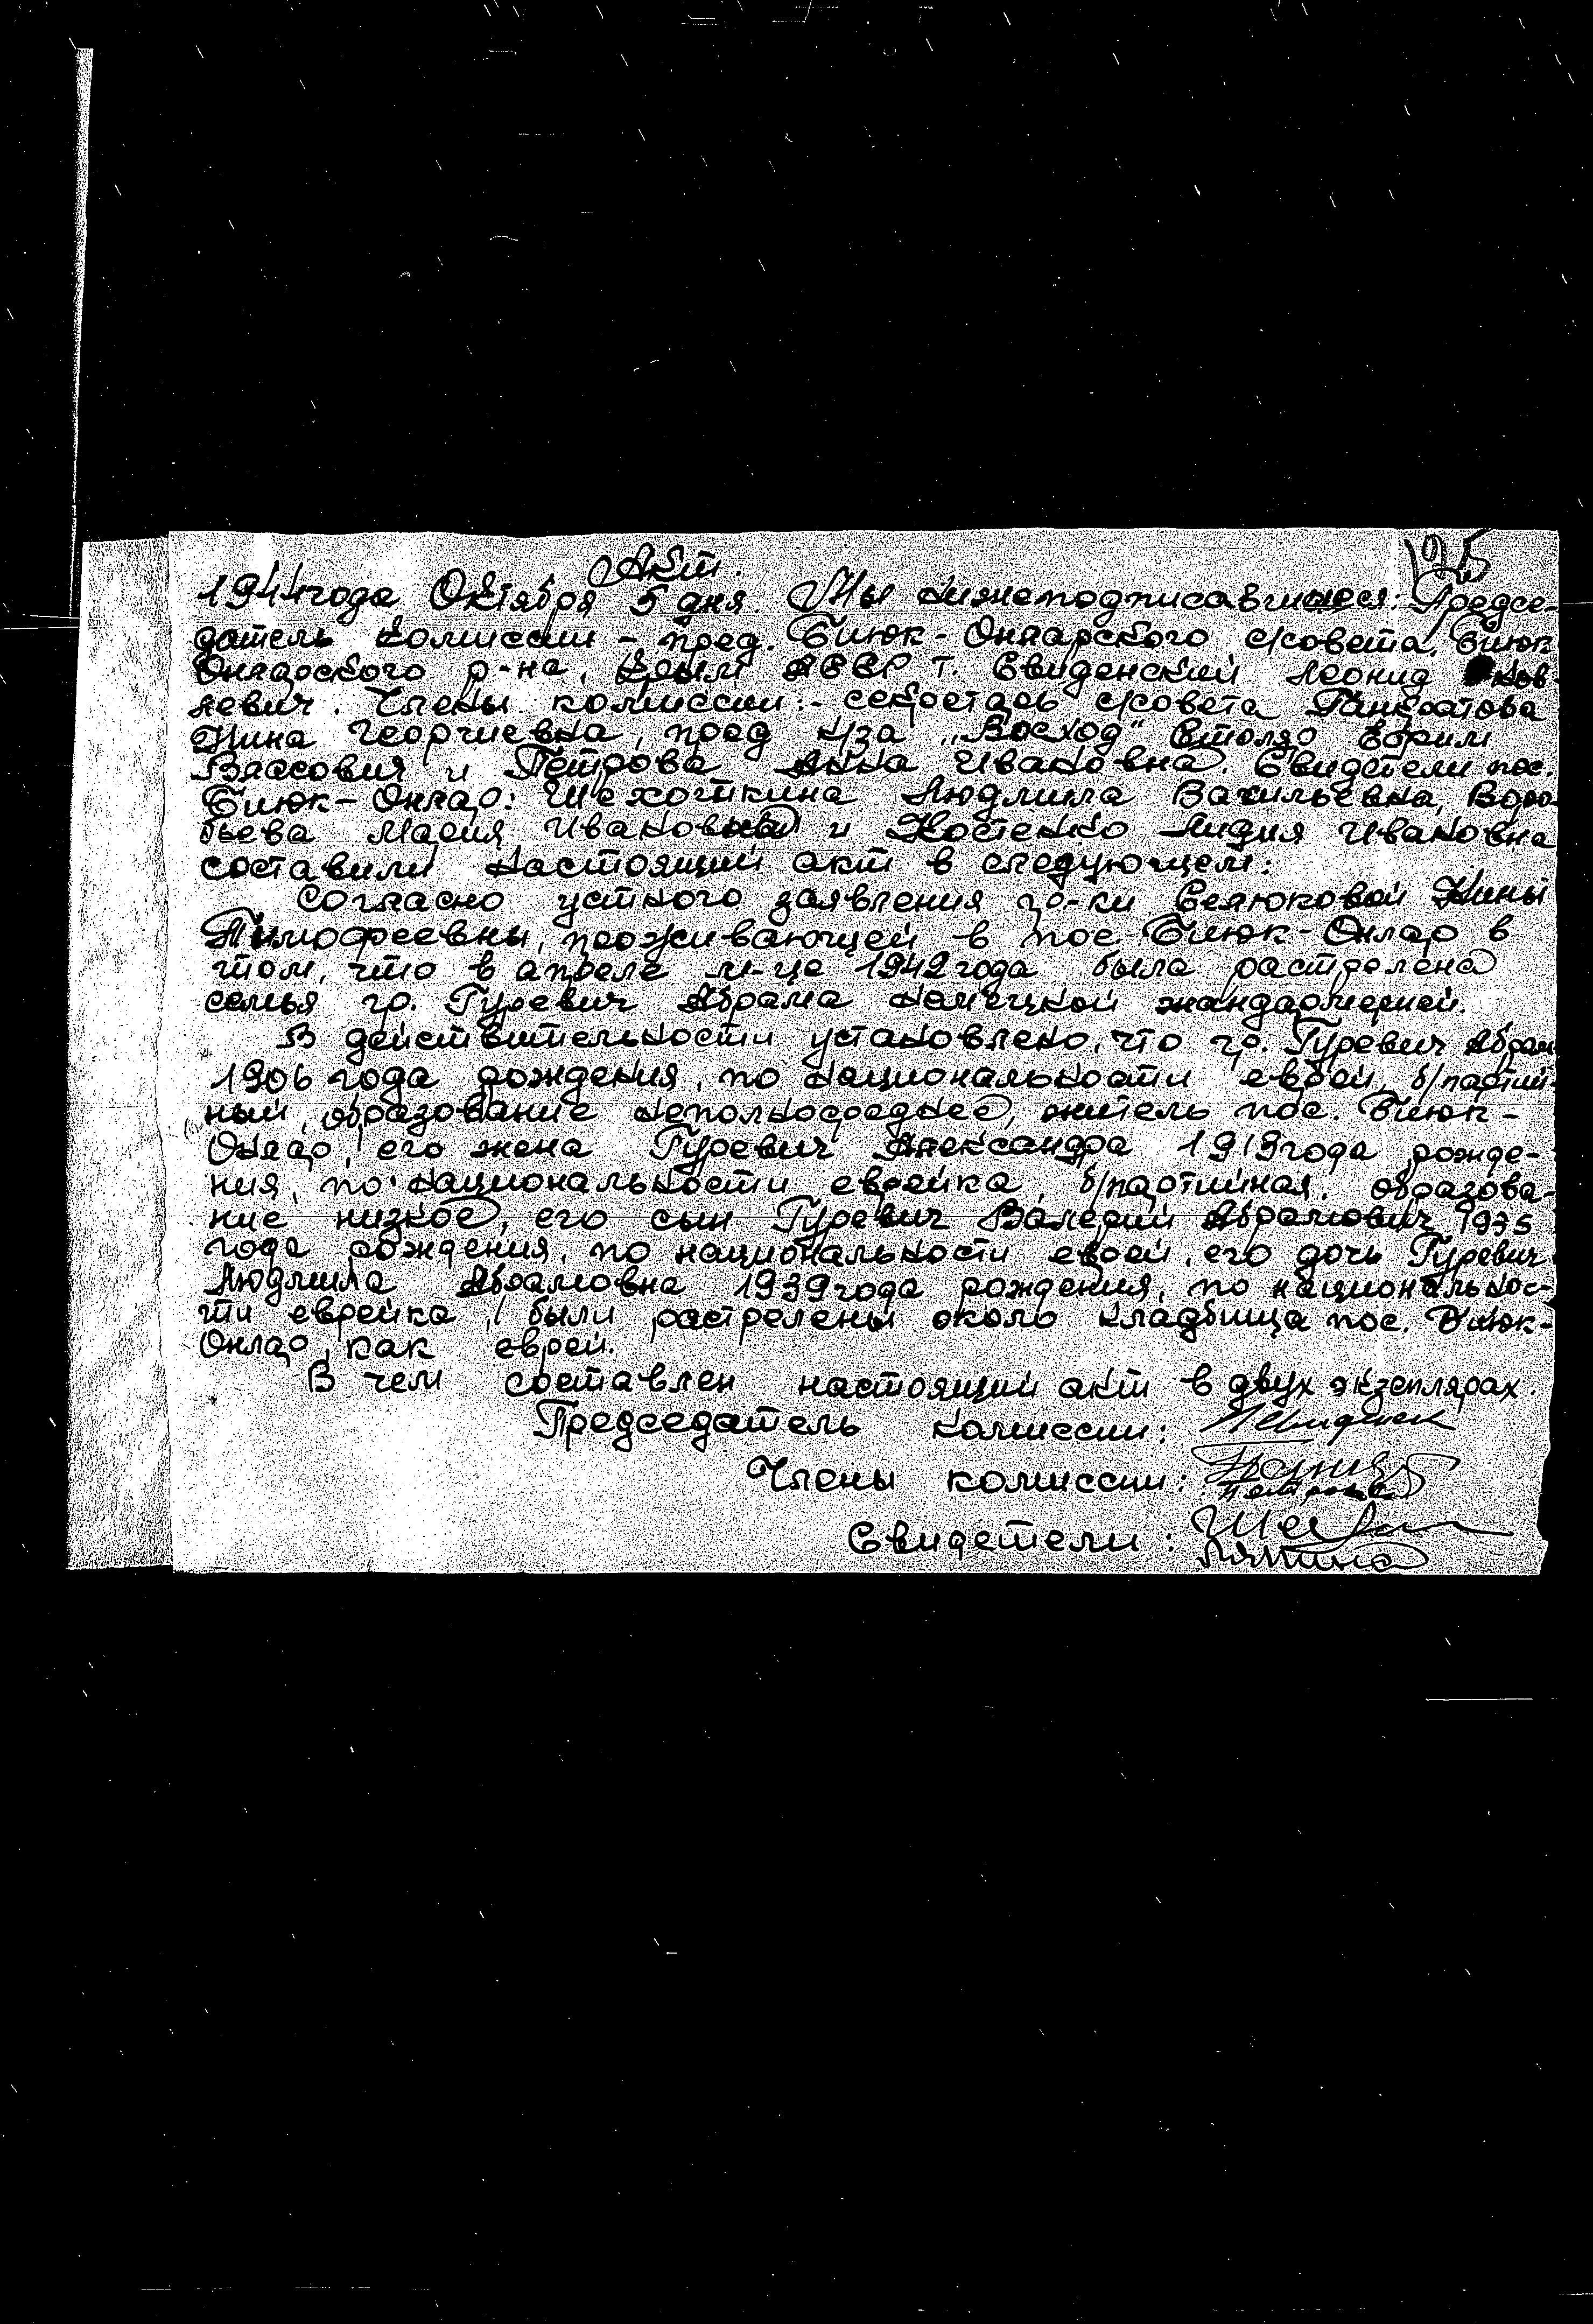 125
Акт.
1944 года Октября 5 дня. Мы нижеподписавшиеся: Предсе-
датель комиссии - пред. Биюк-Онларского с/совета, Биюк
Онларского р-на, Крым АССР т. Свиденский Леонид
левич. Члены комиссии: - секретарь с/совета Панкратова
Нина Георгиевна, пред к/за "Восход" Столяр Ефрим
Власович и Петрова Анна Ивановна. Свидетели пос.
Биюк-Онлар: Шехоткина Людмила Васильевна, Воро-
бьева Мария Ивановна и Костенко Лидия Ивановна
составили настоящий акт в следующем:
Согласно устного заявления гр-ки Селюковой Нины
Тимофеевны, проживающей в пос. Биюк-Онлар в
том, что в апреле м-це 1942 года была растрелена
семья гр. Гуревич Абрама немецкой жандармерией.
В действительности установлено, что гр. Гуревич Абрам
1906 года рождения, по национальности еврей, б/партий-
ный, образование неполносреднее, житель пос. Биюк-
Онлар, его жена Гуревич Александра 1919 года рожде-
ния, по национальности еврейка, б/партийная, образова-
ние низкое, его сын Гуревич Валерий Абрамович 1935
года рождения, по национальности еврей, его дочь Гуревич
Людмила Абрамовна 1939 года рождения, по национальнос-
ти еврейка, были растрелены около кладбища пос. Биюк-
Онлар, как евреи.
В чем составлен настоящий акт в двух экземплярах.
Председатель комиссии:
Члены комиссии:
Петрова
Свидетели: